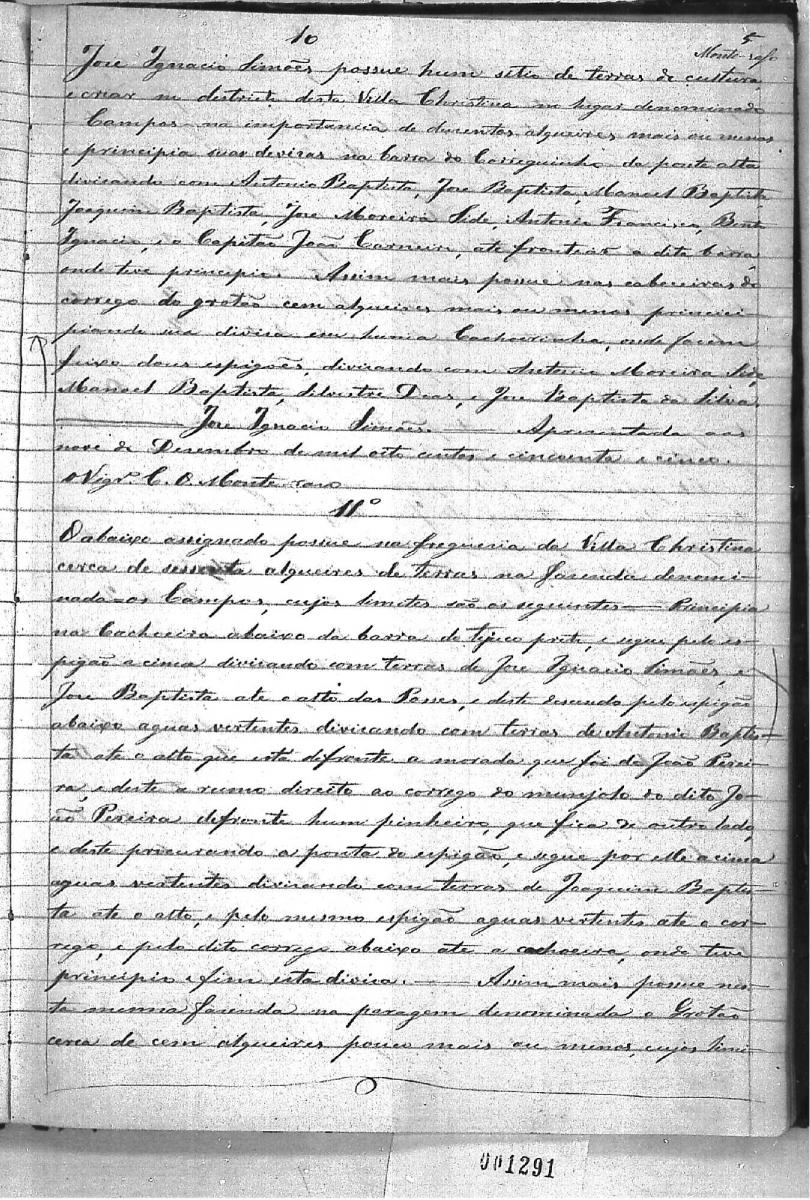 5
10
Monte raso
José Ignacio Simões possue hum sitio de terras de cultura,
e criar no districto desta Villa Christina no lugar denominado
Campos na importancia de dusentos alqueires mais ou menos
e principia suas devizas na barra do Correguinho da ponte alta
divisando com Antonio Baptista, José Baptista, Manoel Baptista
Joaquim Baptista José Moreira Side, Antonio Francisco, Bento
Ignacio, e o Capitão João Carneiro, até fronteiar a dita barra,
onde teve principio. Assim mais possue nas cabeceiras do
corrego do grotão cem alqueires mais ou menos princi-
piando sua divisa em huma Cachoeirinha, onde fazem
feixo dous espigões, divisando com Antonio Moreira Side,
Manoel Baptista, Silvestre Dias, e José Baptista da Silva.
José Ignacio Simões. — Apresentada aos
nove de Desembro de mil oito centos e cincoenta e cinco.
O Vigr.º C. O. Monte raso
11º
O abaixo assignado possue na freguesia da Villa Christina
cerca de sessenta alqueires de terras na fazenda denomi-
nada os Campos, cujos limites são os seguintes — Principia
na Cachoeira abaixo da barra do tijuco preto, e segue pelo es-
pigão a cima divisando com terras de José Ignacio Simões, e
José Baptista até o alto das Posses, e deste descendo pelo espigão
abaixo aguas vertentes divisando com terras de Antonio Baptis-
ta até o alto que está defronte a morada que foi de João Perei-
ra, e deste a rumo direito ao corrego do munjolo do dito Jo-
ão Pereira defronte hum pinheiro, que fica de outro lado,
e deste procurando a ponta do espigão, e segue por elle acima
aguas vertentes divisando com terras de Joaquim Baptis-
ta até o alto, e pelo mesmo espigão aguas vertentes até o cor-
rego, e pelo dito corrego abaixo até a cachoeira, onde teve
principio e fim esta divisa. — Assim mais possue nes-
ta mesma fazenda na paragem denominada o Grotão
cerca de cem alqueires pouco mais ou menos, cujos limi-
001291